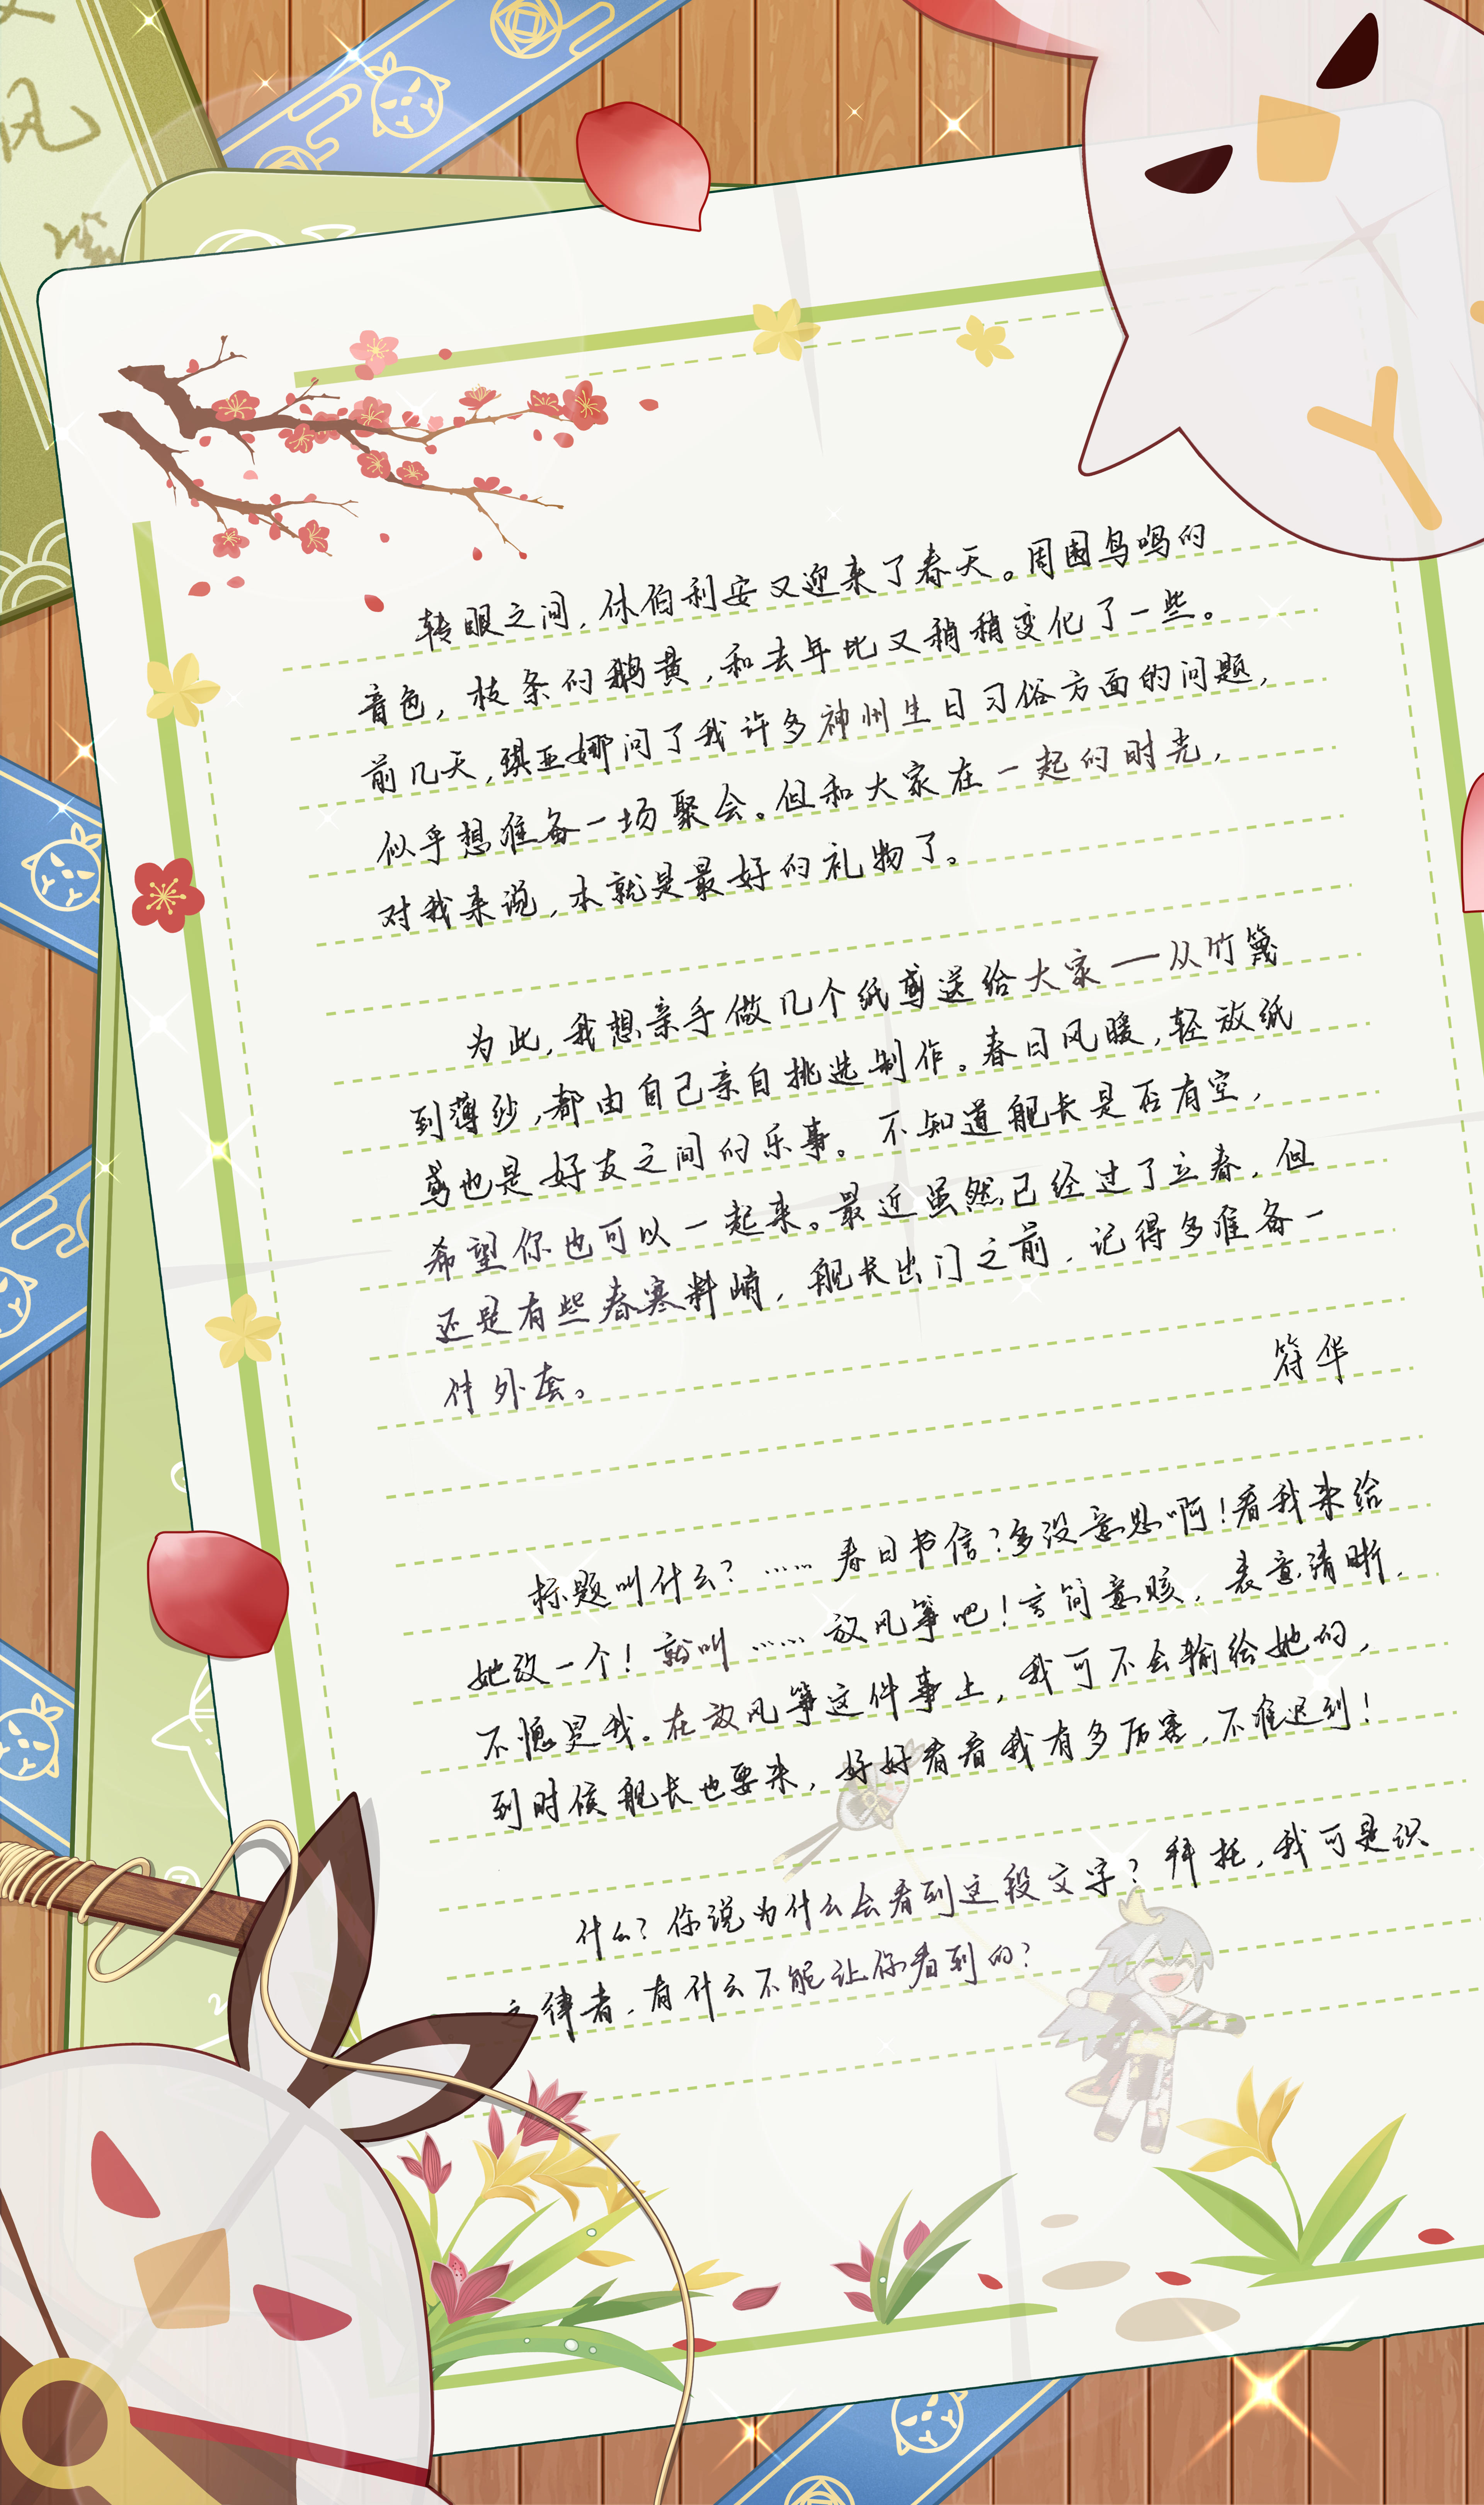 风
转眼之间，休伯利安又迎来了春天。周围鸟鸣的
音色，枝条的鹅黄，和去年比又稍稍变化了一些。
前几天，琪亚娜问了我许多神州生日习俗方面的问题，
似乎想准备一场聚会。但和大家在一起的时光，
对我来说，本就是最好的礼物了。
为此，我想亲手做几个纸鸢送给大家——从竹篾
到薄纱，都由自己亲自挑选制作。春日风暖，轻放纸
鸢也是好友之间的乐事。不知道舰长是否有空，
希望你也可以一起来。最近虽然已经过了立春，但
还是有些春寒料峭，舰长出门之前，记得多准备一
件外套。
符华
标题叫什么？……春日书信？多没意思啊！看我来给
她改一个！就叫……放风筝吧！言简意赅，表意清晰，
不愧是我。在放风筝这件事上，我可不会输给她的，
到时候舰长也要来，好好看看我有多厉害，不准迟到！
什么？你说为什么会看到这段文字？拜托，我可是识
之律者，有什么不能让你看到的？